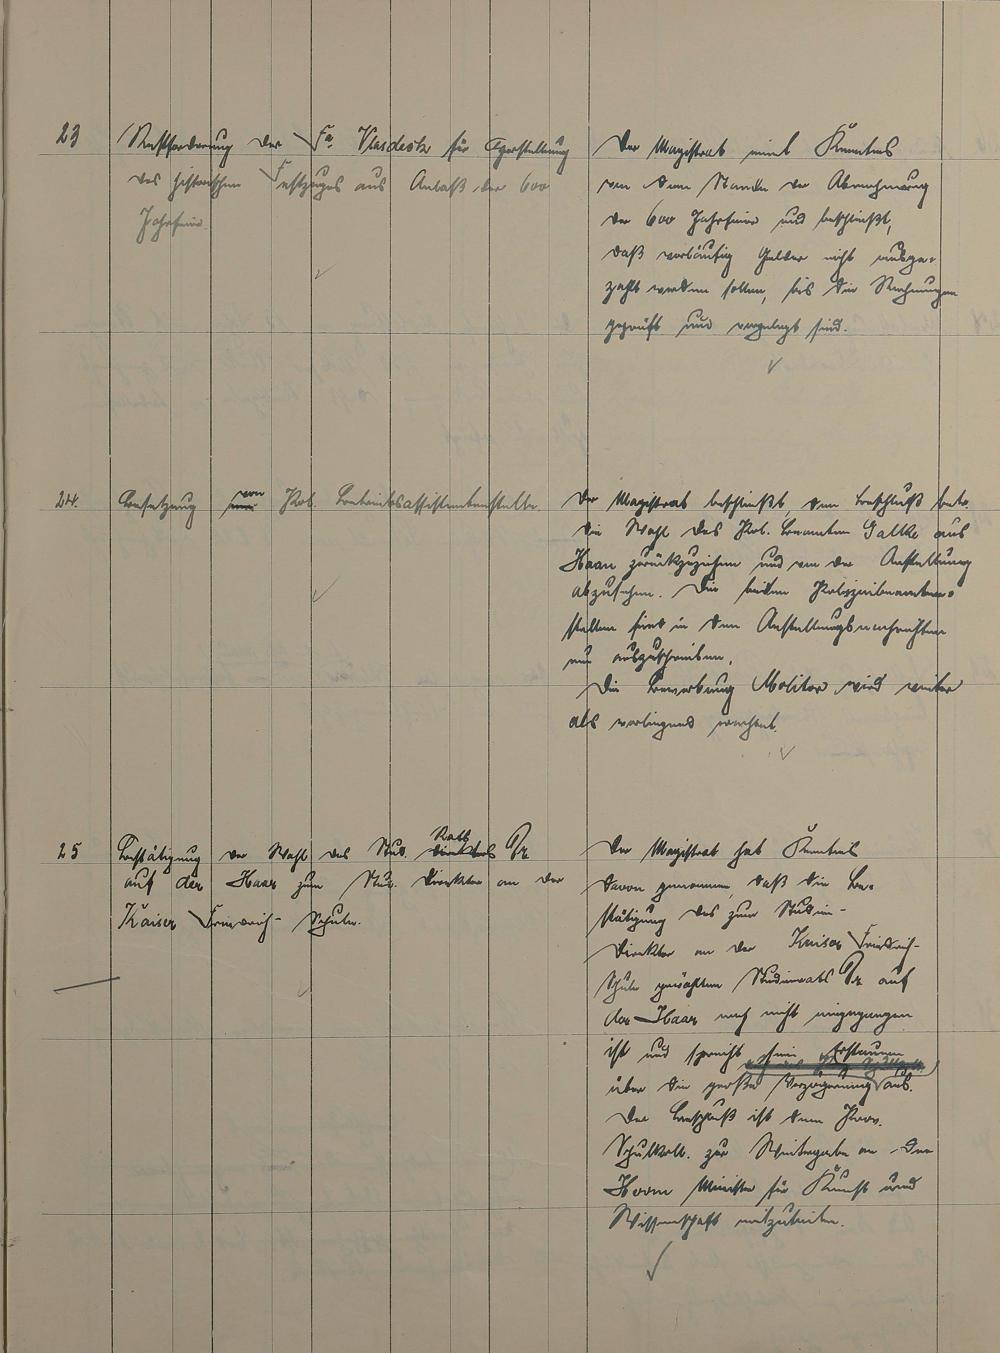 23
Restforderung der Fa. Verdesch für Herstellung
des historischen Festzuges aus Anlaß der 600
Jahrfeier.
Der Magistrat nimmt Kenntnis
von dem Stande der Abrechnung
der 600 Jahrfeier und beschließt,
daß vorläufig Gelder nicht ausge-
zahlt werden sollen, bis die Rechnungen
geprüft und vorgelegt sind.
24.
Besetzung von Pol. Betriebsassistentenstelle
Der Magistrat beschließt, den Beschluß betr.
die Wahl des Pol. Beamten Galke aus
Haan zurückzuziehen und von der Anstellung
abzusehen. Die beiden Polizeibeamten-
stellen sind in den Anstellungsnachrichten
neu auszuschreiben.
Die Bewerbung Molitor wird weiter
als vorliegend erachtet.
25
Bestätigung der Wahl des Stud. Rats Dr
auf der Haar zum Stud. Direktor an der
Kaiser Friedrich-Schule.
Der Magistrat hat Kenntnis
davon genommen, daß die Be-
stätigung des zum Studien-
direktor an der Kaiser Friedrich-
Schule gewählten Studienrats Dr auf
der Haar noch nicht eingegangen
ist und spricht sein Erstaunen
über die große Verzögerung aus.
Der Beschluß ist dem Prov.
Schulkoll. zur Weitergabe an den
Herrn Minister für Kunst und
Wissenschaft mitzuteilen.